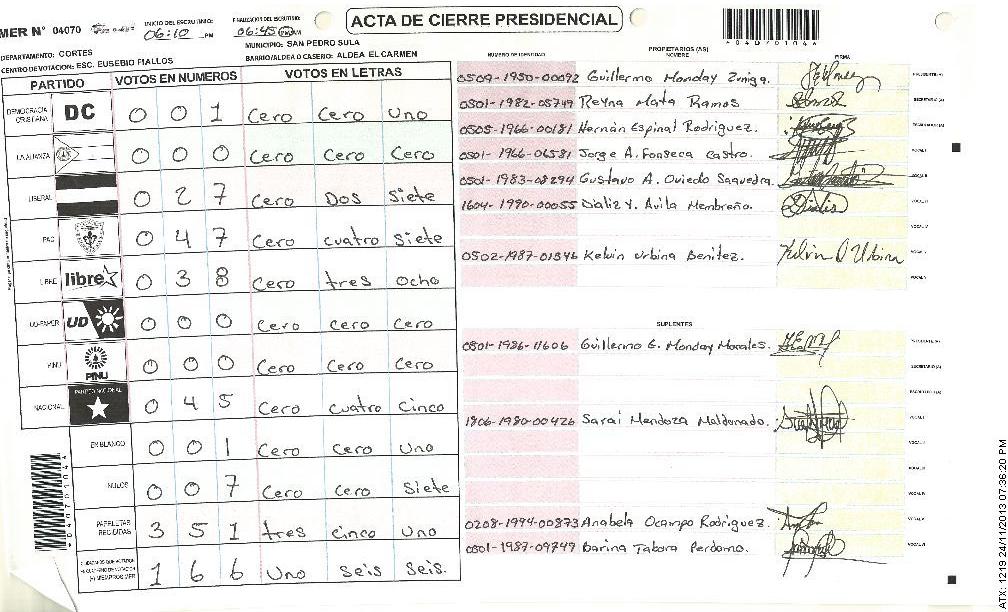 ACTA DE CIERRE PRESIDENCIAL
MER N° 04070
INICIO DEL ESCRUTINIO:
06:10 PM
FINALIZACION DEL ESCRUTINIO:
06:45 PM
*04070104*
DEPARTAMENTO: CORTES
MUNICIPIO: SAN PEDRO SULA
CENTRO DE VOTACION: ESC. EUSEBIO FIALLOS
BARRIO/ALDEA O CASERIO: ALDEA EL CARMEN
PARTIDO VOTOS EN NUMEROS VOTOS EN LETRAS
DEMOCRACIA CRISTIANA DC 0 0 1 Cero Cero Uno
LA ALIANZA 0 0 0 Cero Cero Cero
LIBERAL 0 2 7 Cero Dos Siete
PAC 0 4 7 Cero cuatro Siete
LIBRE libre 0 3 8 Cero tres Ocho
UD-FAPER UD 0 0 0 Cero Cero Cero
PINU PINU 0 0 0 Cero Cero Cero
NACIONAL PARTIDO NACIONAL 0 4 5 Cero Cuatro Cinco
EN BLANCO 0 0 1 Cero Cero Uno
NULOS 0 0 7 Cero Cero Siete
PAPELETAS RECIBIDAS 3 5 1 tres Cinco Uno
1 6 6 Uno Seis Seis.
*04070104*
PROPIETARIOS (AS)
NUMERO DE IDENTIDAD NOMBRE FIRMA
0509-1950-00092 Guillermo Monday Zuniga. PRESIDENTE(A)
0501-1982-05749 Reyna Mata Ramos SECRETARIO(A)
0505-1966-00181 Hernán Espinal Rodriguez. ESCRUTADOR(A)
0501-1966-06581 Jorge A. Fonseca Castro. VOCAL I
0501-1983-08294 Gustavo A. Oviedo Saavedra. VOCAL II
1604-1990-00055 Dializ Y. Avila Membreño. VOCAL III
VOCAL IV
0502-1987-01346 Kelvin Urbina Benitez. Kelvin O Urbina VOCAL V
VOCAL VI
SUPLENTES
0801-1986-11606 Guillermo G. Monday Morales. PRESIDENTE(A)
SECRETARIO(A)
ESCRUTADOR(A)
1806-1980-00426 Sarai Mendoza Maldonado. VOCAL I
VOCAL II
VOCAL III
VOCAL IV
0208-1994-00873 Anabela Ocampo Rodriguez. VOCAL V
0501-1987-09749 Darina Tabora Perdomo. VOCAL VI
ATX: 1219 24/11/2013 07:36:20 PM